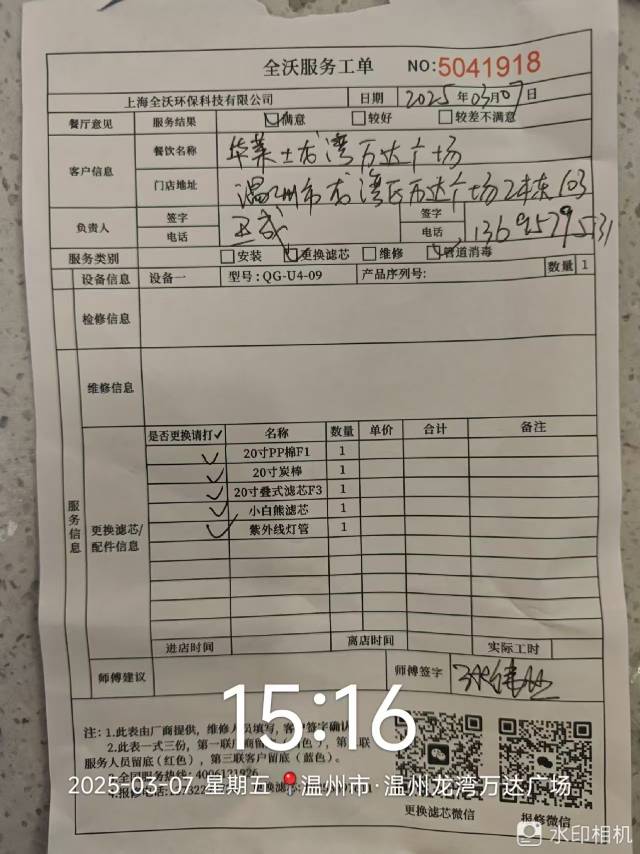 全沃服务工单 NO:5041918
上海全沃环保科技有限公司 日期 2025年03月07日
餐厅意见 服务结果 满意 较好 较差不满意
客户信息 餐饮名称 华莱士龙湾万达广场
门店地址 温州市龙湾区万达广场2幢东103
负责人 签字 签字
电话 电话
服务类别 安装 更换滤芯 维修 管道消毒
设备信息 设备一 型号:QG-U4-09 产品序列号: 数量 1
检修信息
维修信息
服务信息
更换滤芯/配件信息
是否更换请打✓ 名称 数量 单价 合计 备注
✓ 20寸PP棉F1 1
✓ 20寸炭棒 1
✓ 20寸叠式滤芯F3 1
✓ 小白熊滤芯 1
✓ 紫外线灯管 1
进店时间 离店时间 实际工时
师傅建议 师傅签字
15:16
注:1.此表由厂商提供,维修人员填写,客户签字确认
2.此表一式三份,第一联
服务人员留底(红色),第三联客户留底(蓝色)。
全国服务热线:
报修电话:
2025-03-07 星期五 温州市·温州龙湾万达广场
更换滤芯微信 报修微信
水印相机